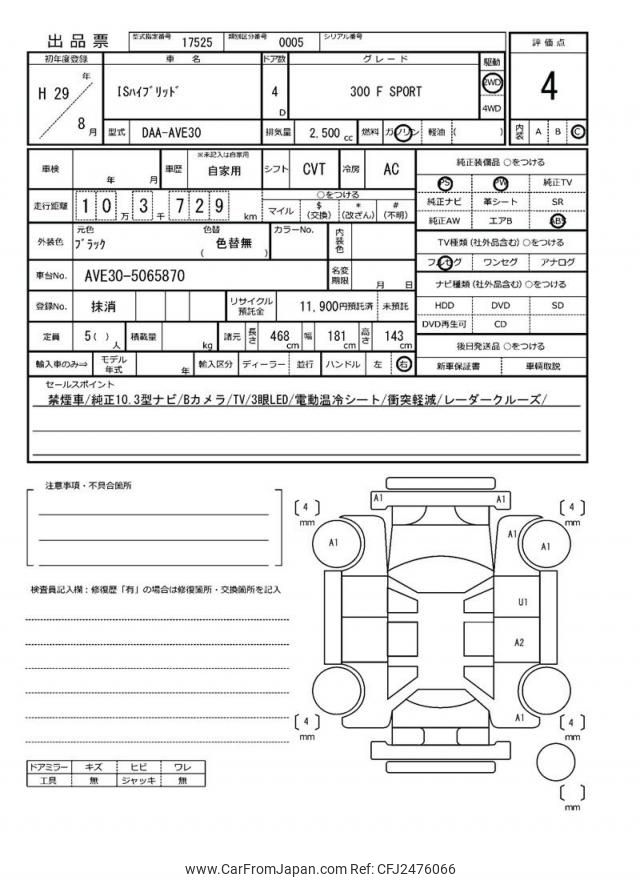 出品票 型式指定番号 17525 類別区分番号 0005 シリアル番号
初年度登録 車 名 ドア数 グレード 駆動 評価点
H 29 年 8 月 ISハイブリッド 4 D 300 F SPORT 2WD 4WD 4
型式 DAA-AVE30 排気量 2,500 cc 燃料 ガソリン 軽油 ( ) 内装 A B C
車検 年 月 車歴 ※未記入は自家用 自家用 シフト CVT 冷房 AC 純正装備品 ○をつける
PS PW 純正TV
走行距離 10万3千729 km ○をつける マイル $(交換) *(改ざん) #(不明) 純正ナビ 革シート SR
純正AW エアB ABS
外装色 元色 ブラック 色替 色替無 ( ) カラーNo. 内装色 TV種類 (社外品含む) ○をつける
フルセグ ワンセグ アナログ
車台No. AVE30-5065870 名変期限 月 日 ナビ種類 (社外品含む) ○をつける
登録No. 抹消 リサイクル預託金 11,900円預託済 未預託 HDD DVD SD
DVD再生可 CD
定員 5 ( ) 人 積載量 kg 諸元 長さ 468 cm 幅 181 cm 高さ 143 cm 後日発送品 ○をつける
輸入車のみ⇒ モデル年式 年 輸入区分 ディーラー 並行 ハンドル 左 右 新車保証書 車輌取説
セールスポイント
禁煙車/純正10.3型ナビ/Bカメラ/TV/3眼LED/電動温冷シート/衝突軽減/レーダークルーズ/
注意事項・不具合箇所
検査員記入欄:修復歴「有」の場合は修復箇所・交換箇所を記入
A1 A1
[4] mm [4] mm
A1 A1 A1
U1
A2
A1
[4] mm [4] mm
[ ] mm
ドアミラー キズ ヒビ ワレ
工具 無 ジャッキ 無
www.CarFromJapan.com Ref: CFJ2476066